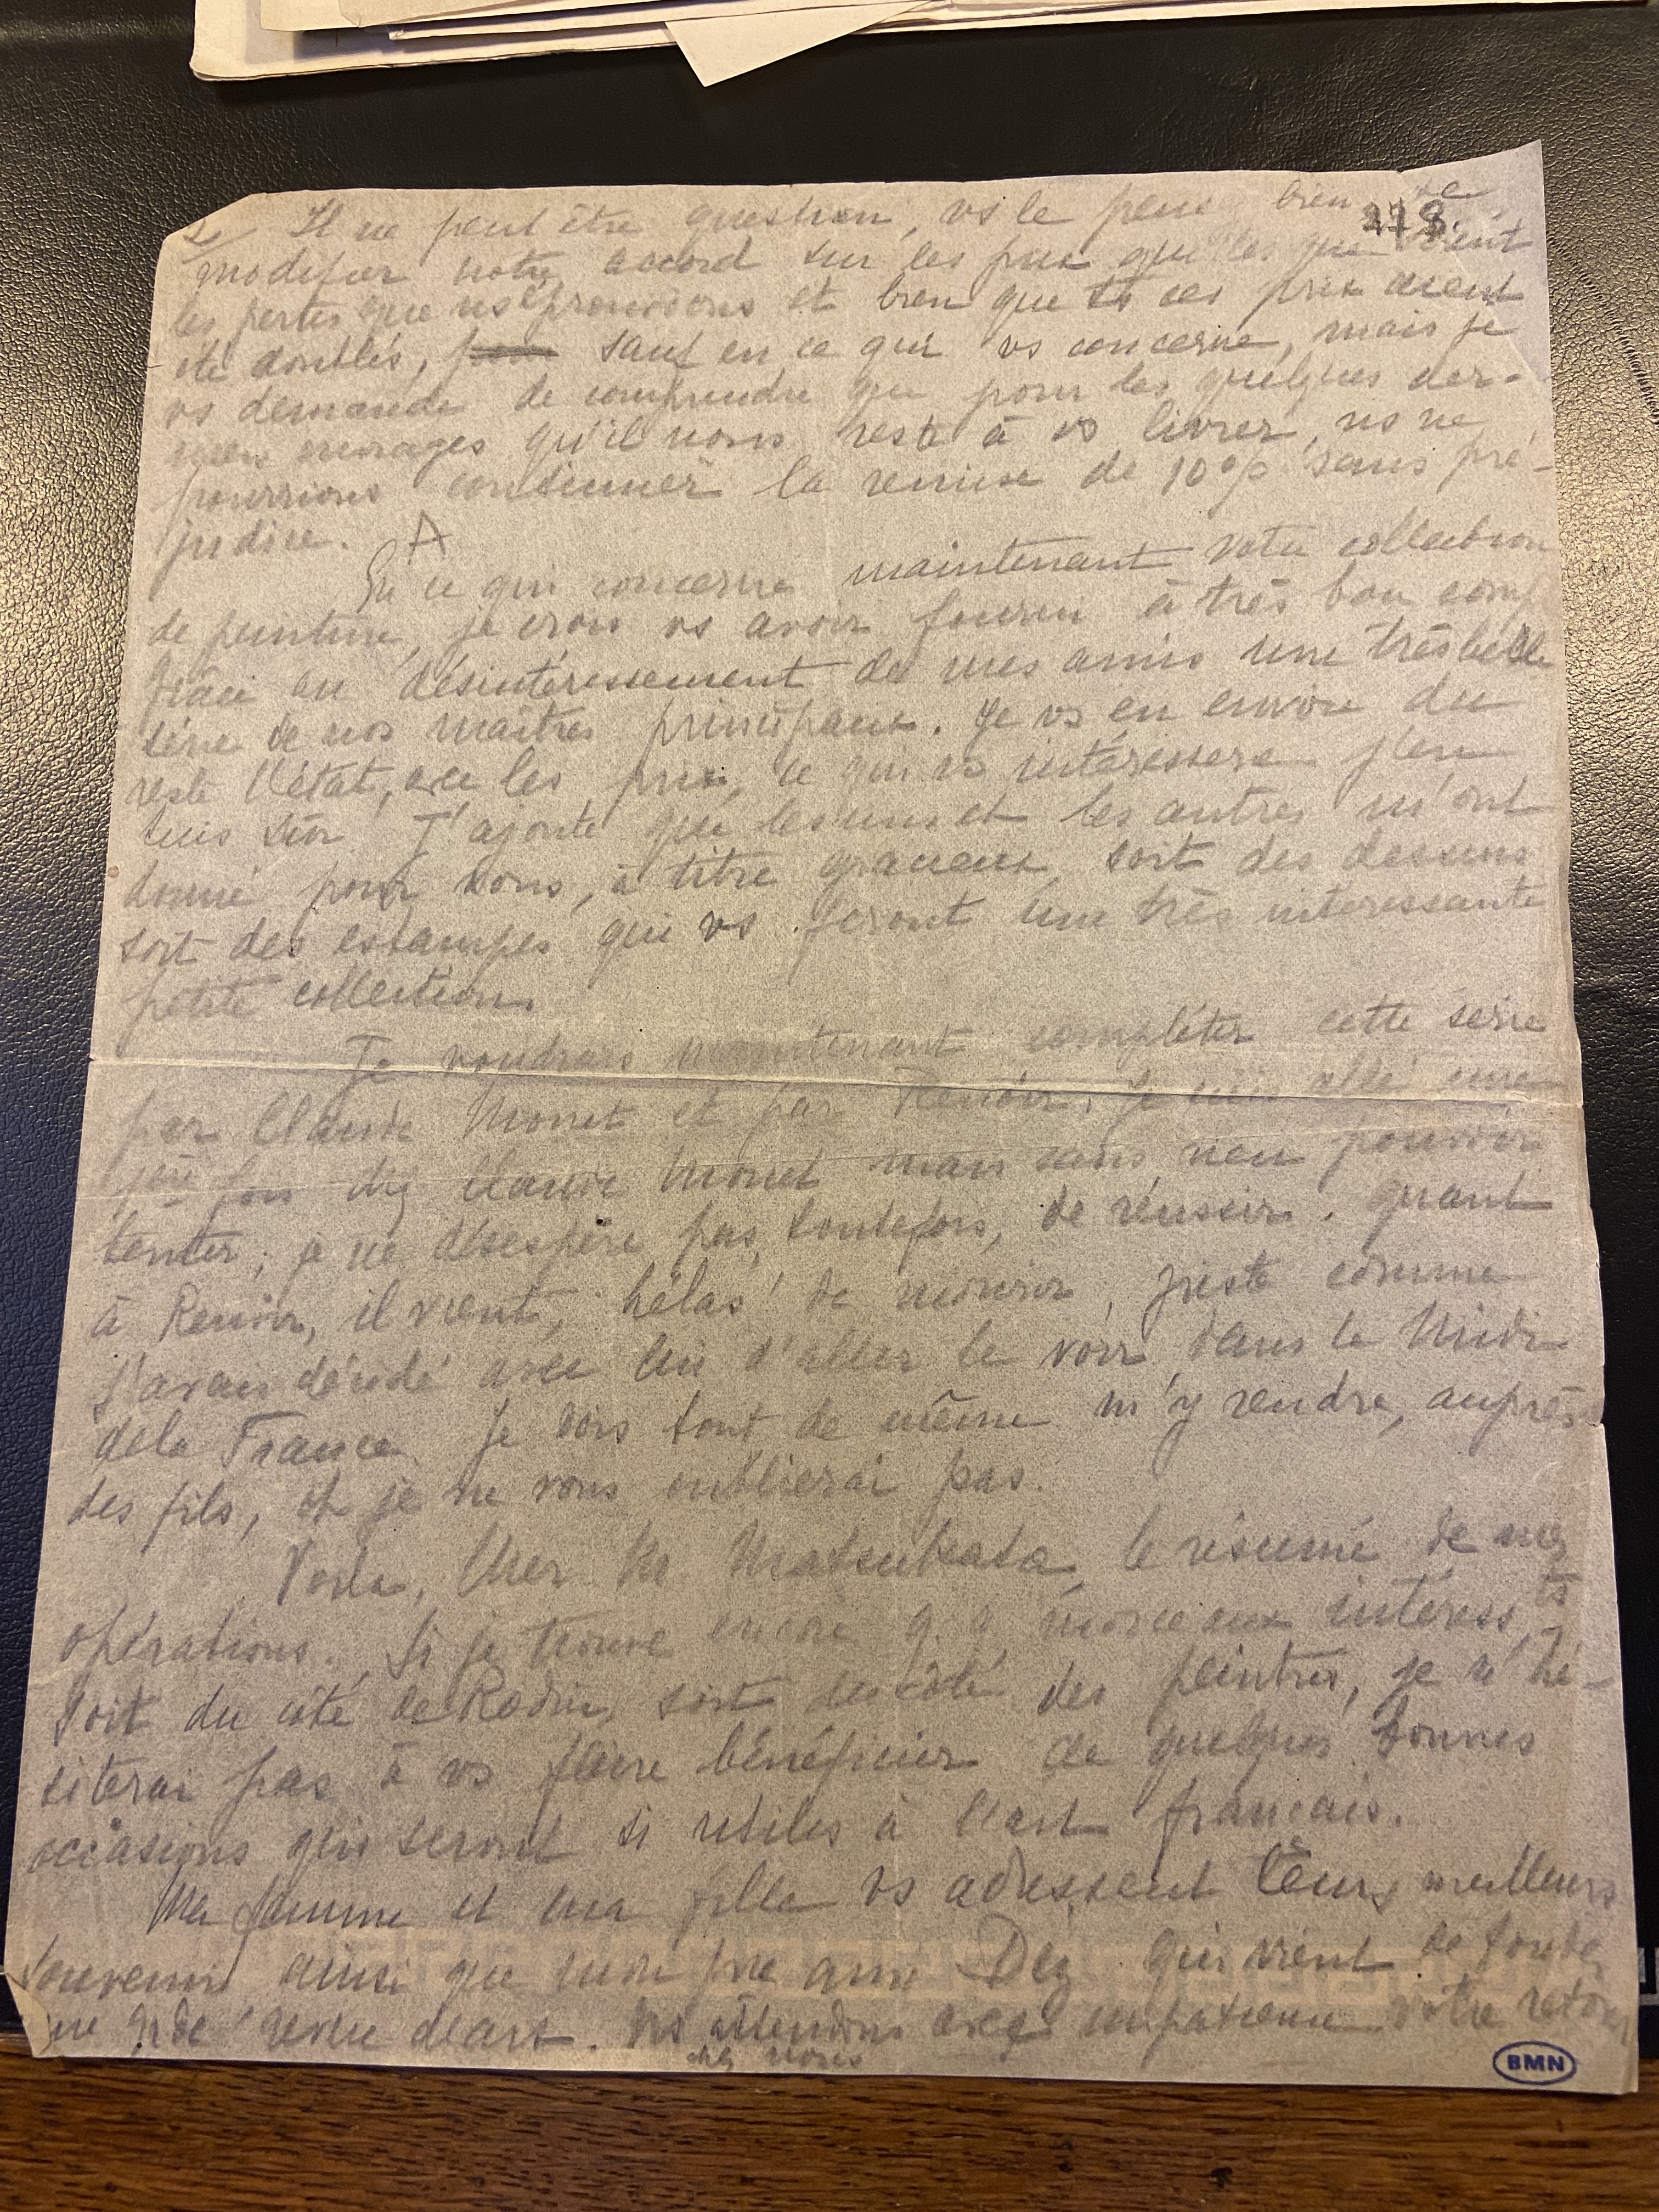 2/ Il ne peut être question, vs le pensez bien, de
278
modifier notre accord sur les prix quelles que soient
les pertes que ns éprouvions et bien que ts ces prix aient
été doublés, sauf en ce qui vs concerne, mais je
vs demande de comprendre que pour les quelques der-
niers ouvrages qu'il nous reste à vs livrer, ns ne
pourrions continuer la remise de 10% sans pré-
judice. A
En ce qui concerne maintenant votre collection
de peinture, je crois vs avoir fourni à très bon comp
grâce au désintéressement de mes amis une très belle
série de nos maîtres principaux. Je vs en envoie du
reste l'état, avec les prix, ce qui vs intéressera j'en
suis sûr. J'ajoute que les uns et les autres m'ont
donné pour vous, à titre gracieux, soit des dessins
soit des estampes qui vs feront une très intéressante
petite collection.
Je voudrais maintenant compléter cette série
par Claude Monet et par Renoir. Je suis allé une
1ère fois chez Claude Monet mais sans rien pouvoir
tenter; je ne désespère pas, toutefois, de réussir. Quant
à Renoir, il vient, hélas! de mourir, juste comme
j'avais décidé avec lui d'aller le voir dans le Midi
de la France. Je dois tout de même m'y rendre, auprès
des fils, et je ne vous oublierai pas.
Voilà, Cher M. Matsukata, le résumé de mes
opérations. Si je trouve encore q.q. morceaux intéress.ts
soit du côté de Rodin, soit du côté des peintres, je n'hé-
siterai pas à vs faire bénéficier de quelques bonnes
occasions qui seront si utiles à l'art français.
Ma femme et ma fille vs adressent leurs meilleurs
souvenirs ainsi que mon ami Dez qui vient de fonder
une gde revue d'art. Ns attendons avec impatience votre retour
chez nous
BMN